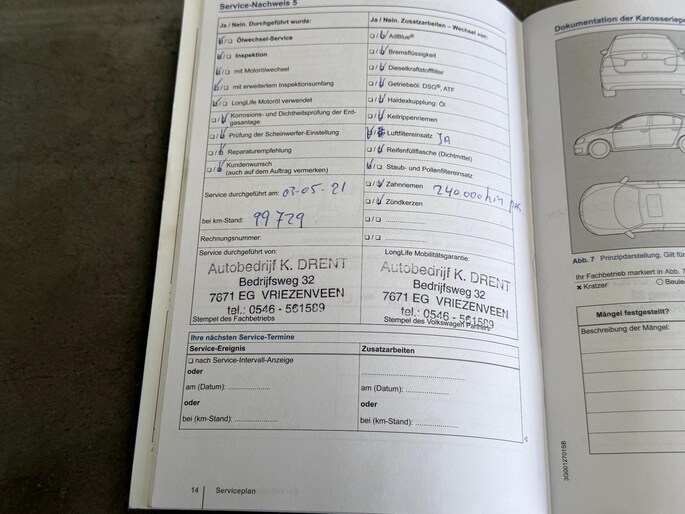 Service-Nachweis 5
Ja / Nein. Durchgeführt wurde:
Ölwechsel-Service
Inspektion
mit Motorölwechsel
mit erweitertem Inspektionsumfang
LongLife Motoröl verwendet
Korrosions- und Dichtheitsprüfung der Erd-
gasanlage
Prüfung der Scheinwerfer-Einstellung
Reparaturempfehlung
Kundenwunsch
(auch auf dem Auftrag vermerken)
Service durchgeführt am: 03-05-21
bei km-Stand: 99729
Rechnungsnummer:
Service durchgeführt von:
Autobedrijf K. DRENT
Bedrijfsweg 32
7671 EG VRIEZENVEEN
tel.: 0546 - 561589
Stempel des Fachbetriebs
Ja / Nein. Zusatzarbeiten – Wechsel von:
AdBlue®
Bremsflüssigkeit
Dieselkraftstofffilter
Getriebeöl: DSG®, ATF
Haldexkupplung: Öl
Keilrippenriemen
Luftfiltereinsatz JA
Reifenfüllflasche (Dichtmittel)
Staub- und Pollenfiltereinsatz
Zahnriemen 240.000
Zündkerzen
LongLife Mobilitätsgarantie:
Autobedrijf K. DRENT
Bedrijfsweg 32
7671 EG VRIEZENVEEN
tel.: 0546 - 561589
Stempel des Volkswagen Partners
Ihre nächsten Service-Termine
Service-Ereignis
nach Service-Intervall-Anzeige
oder
am (Datum): ....................
oder
bei (km-Stand): ....................
Zusatzarbeiten
am (Datum): ....................
oder
bei (km-Stand): ....................
14 Serviceplan
Dokumentation der Karosseriep
Abb. 7 Prinzipdarstellung, Gilt fü
Ihr Fachbetrieb markiert in Abb. 7
x Kratzer
Beule
Mängel festgestellt?
Beschreibung der Mängel:
3G0012701SB